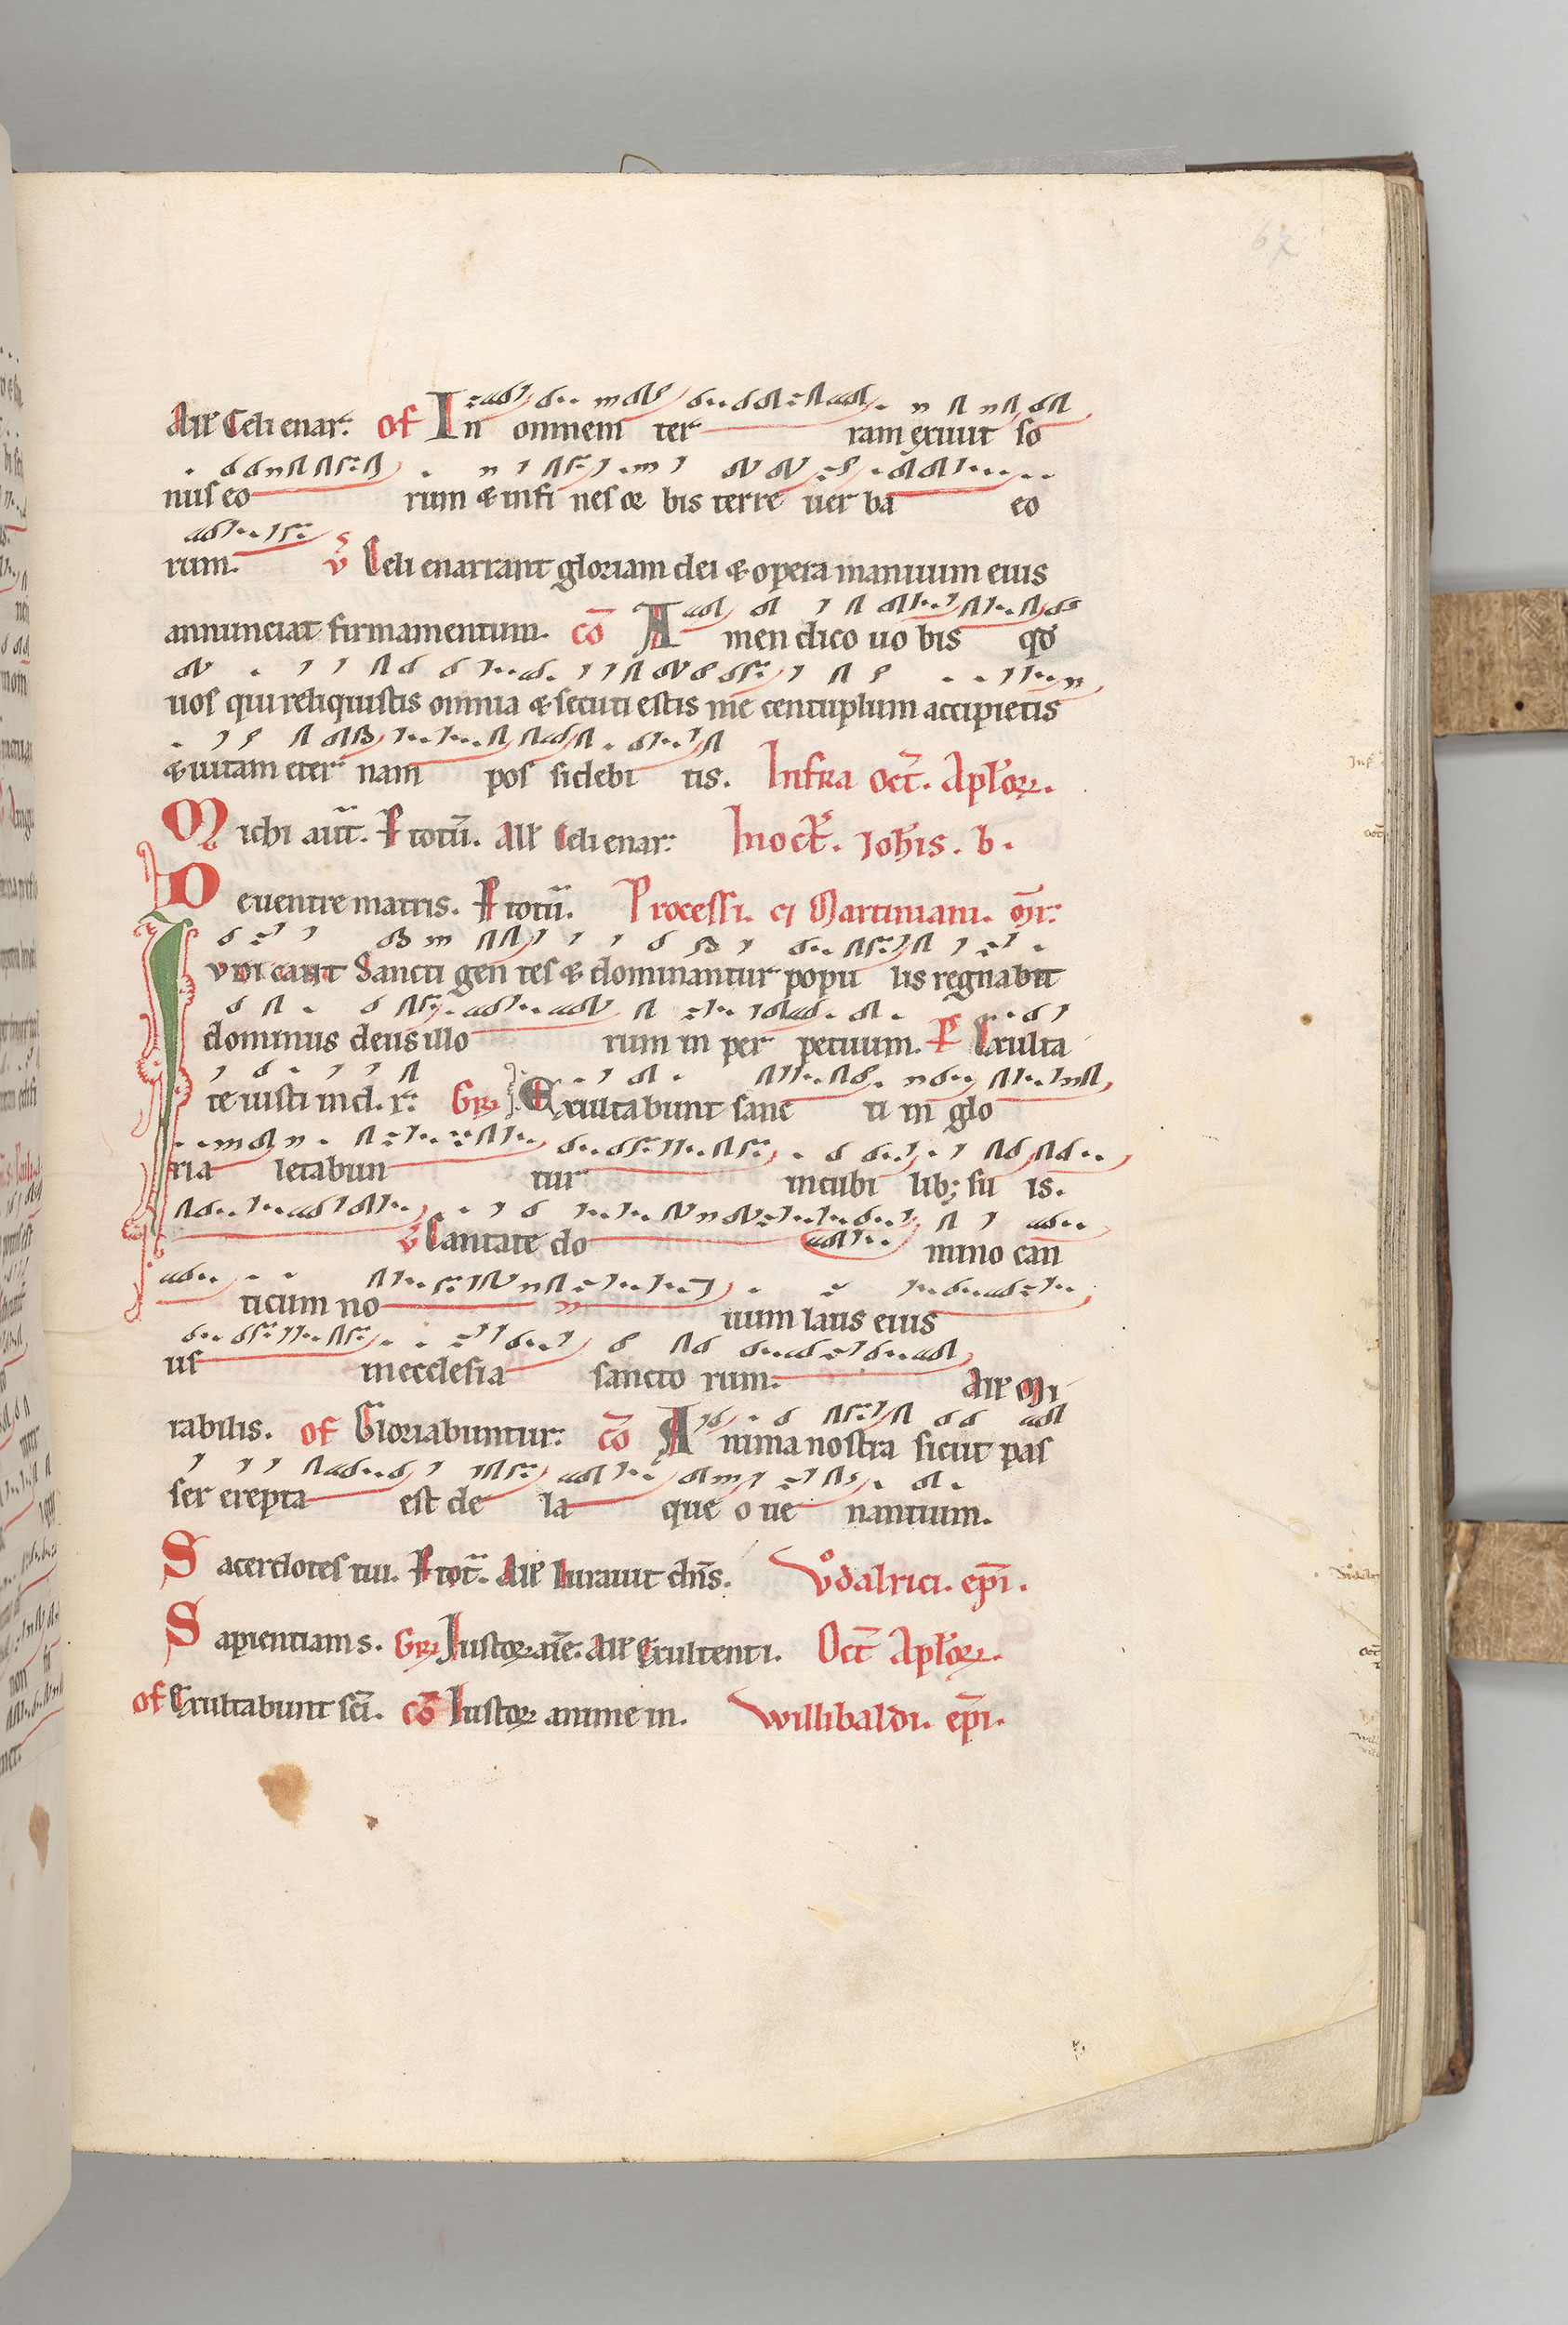 67
All̅ Celi enar: of In omnem ter ram exiuit so
nus eo rum & in fi nes or bis terre uer ba eo
rum. v̅ Celi enarrant gloriam dei & opera manuum eius
annunciat firmamentum. co̅ A men dico uo bis qd
uos qui reliquistis omnia & secuti estis me centuplum accipietis
& uitam eter nam pos sidebi tis. Infra oct̅. Apl̅or.
Michi aut̅. P totu̅. All̅ Celi enar: In oct̅. Joh̅is. b.
De uentre matris. P totu̅. Processi. et Martiniani. m̅r:
Iudicant Sancti gen tes & dominantur popu lis regnabit
dominus deus illo rum in per petuum. P̅ Exulta
te iusti in d. r: Gr Exultabunt sanc ti in glo
ria letabun tur in cubi lib; su is.
v̅ Cantate do mino can
ticum no uum laus eius
us in ecclesia sancto rum. All̅ Mi
rabilis. of Gloriabuntur: co̅ A nima nostra sicut pas
ser erepta est de la que o ue nantium.
Sacerdotes tui. P tot̅. All̅ Iurauit dn̅s. Vͦdalrici. ep̅i.
Sapientiam s. Gr Iustor ai̅e. All̅ Exultent i. Oct̅ Apl̅or.
of Exultabunt sc̅i. co̅ Iustor anime in. Willibaldi. ep̅i.